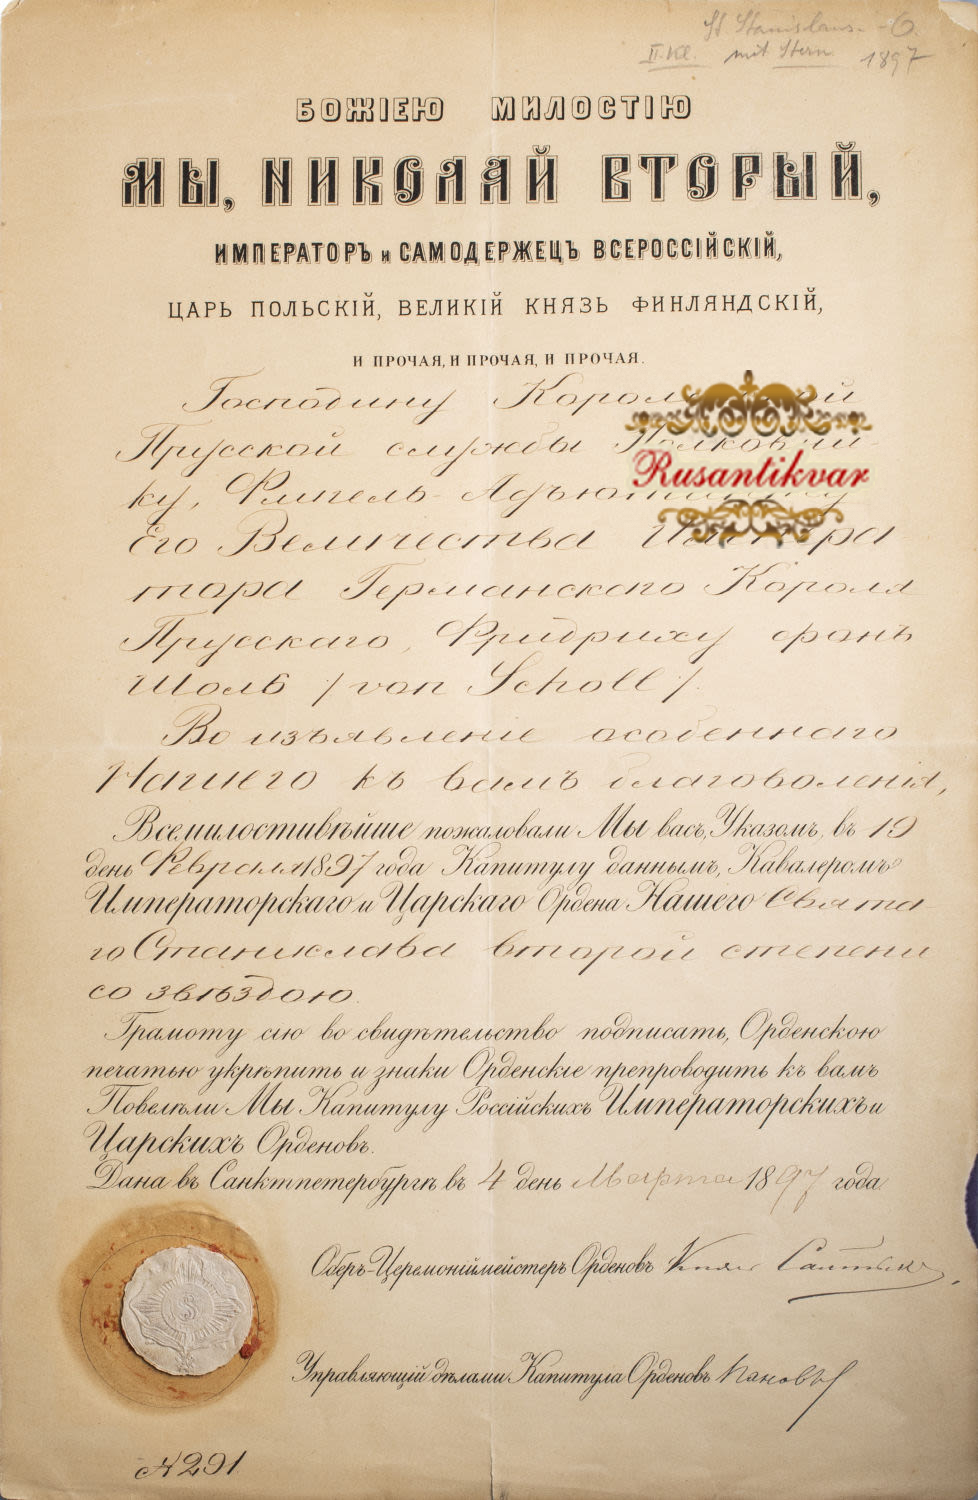 St. Stanislaus-O.
II. Kl. mit Stern 1897
БОЖІЕЮ МИЛОСТІЮ
МЫ, НИКОЛАЙ ВТОРЫЙ,
ИМПЕРАТОРЪ и САМОДЕРЖЕЦЪ ВСЕРОССІЙСКІЙ,
ЦАРЬ ПОЛЬСКІЙ, ВЕЛИКІЙ КНЯЗЬ ФИНЛЯНДСКІЙ,
И ПРОЧАЯ, И ПРОЧАЯ, И ПРОЧАЯ.
Господину
Прусской службы
Rusantikvar
ку, Флигель-
Его Величества
тора Германскаго Короля
Прусскаго, Фридриху фонъ
Шоль /von Scholl/.
Во изъявленіе особеннаго
Нашего къ вамъ благоволенія,
Всемилостивѣйше пожаловали Мы васъ, Указомъ, въ 19
день Февраля 1897 года Капитулу даннымъ, Кавалеромъ
Императорскаго и Царскаго Ордена Нашего Свята-
го Станислава второй степени
со звѣздою.
Грамоту сію во свидѣтельство подписать, Орденскою
печатью укрѣпить и знаки Орденскіе препроводить къ вамъ
Повелѣли Мы Капитулу Россійскихъ Императорскихъ и
Царскихъ Орденовъ.
Дана въ Санктпетербургѣ въ 4 день Марта 1897 года.
Оберъ-Церемоніймейстеръ Орденовъ Князь
Управляющій дѣлами Капитула Орденовъ Пановъ
S
№ 291